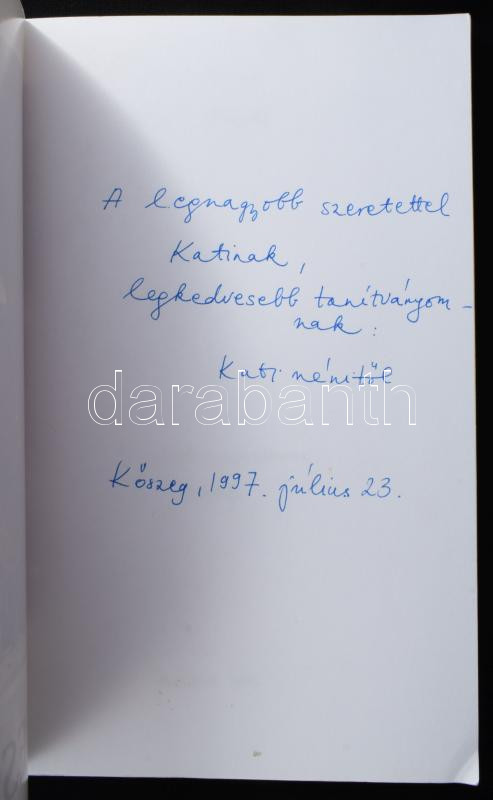 A legnagyobb szeretettel
Katinak,
legkedvesebb tanítványom-
nak:
Kati nénitől
darabanth
Kőszeg, 1997. július 23.